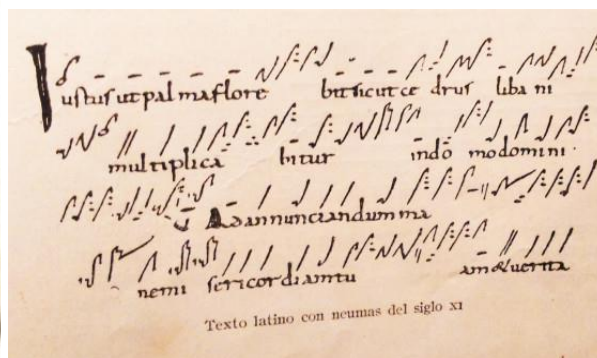 Iustus ut palma flore bit sicut ce drus liba ni
multiplica bitur indō modomini ·
Ad annunciandum ma
nemi sericordiam tu am & uerita
Texto latino con neumas del siglo XI